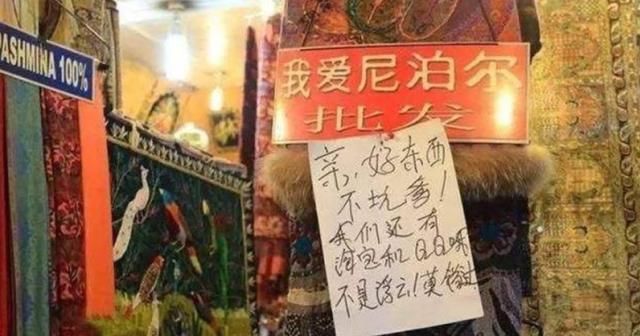 PASHMINA 100%
我爱尼泊尔
批发
亲,好东西
不坑爹!
我们还有
淘宝和QQ哦
不是浮云!莫错过